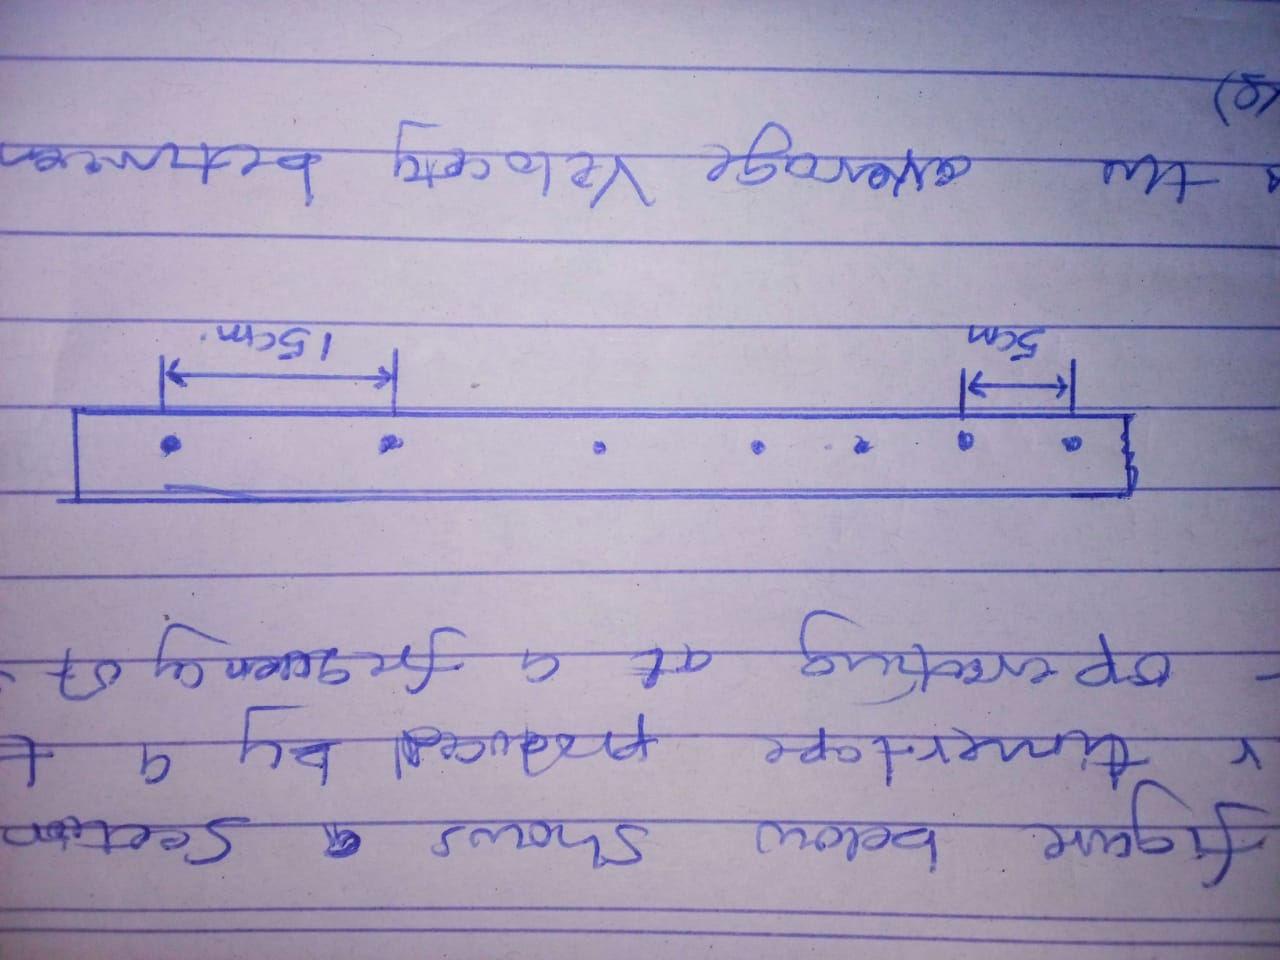 figure below shows a section
r timertape produced by a t
- operating at a frequency of
5cm
15cm.
s the average Velocity between